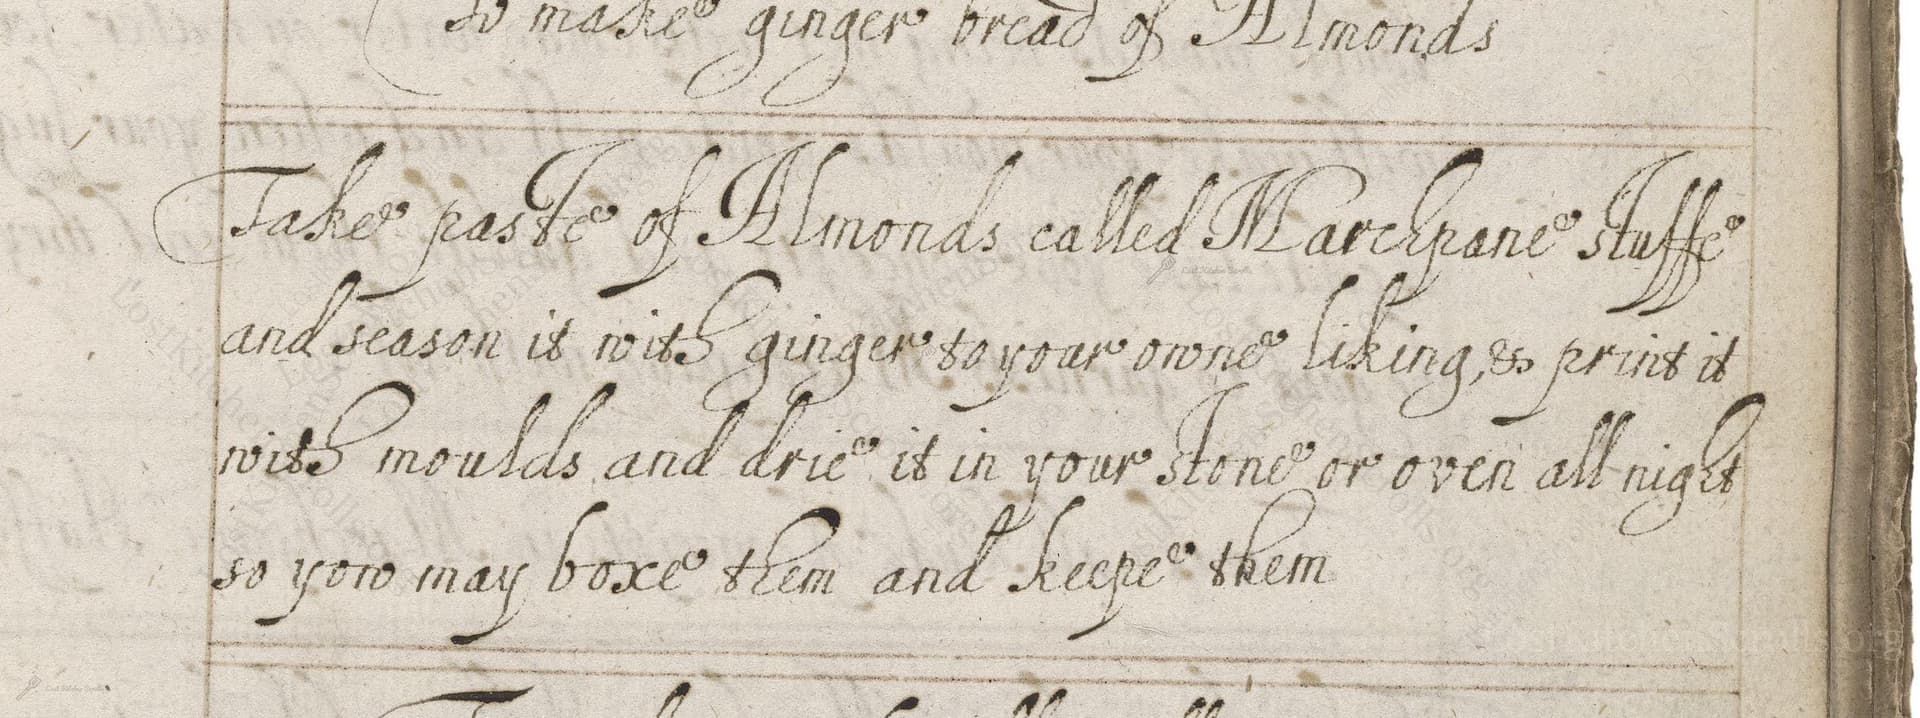 To make ginger bread of Almonds
Take paste of Almonds called Marchpane stuffe
and season it with ginger to your owne liking, & print it
with moulds and drie it in your stone or oven all night
so yow may boxe them and keepe them